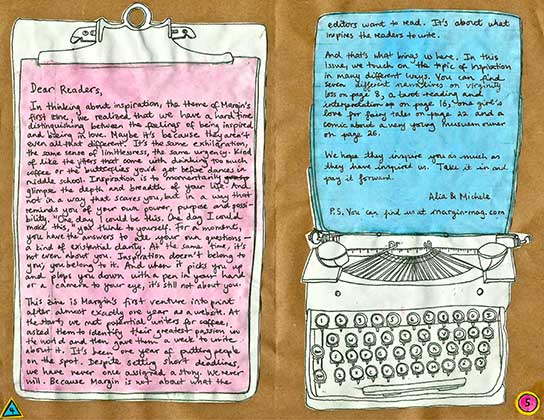 Dear Readers,
In thinking about inspiration, the theme of Margin's
first zine, we realized that we have a hard time
distinguishing between the feelings of being inspired
and being in love. Maybe it's because they aren't
even all that different. It's the same exhilaration,
the same sense of limitlessness, the same urgency. Kind
of like the jitters that come with drinking too much
coffee or the butterflies you'd get before dances in
middle school. Inspiration is to momentarily
glimpse the depth and breadth of your life. And
not in a way that scares you, but in a way that
reminds you of your own power, purpose and possi-
bility. "One day I could be this. One day I could
make this," you think to yourself. For a moment,
you have the answers to all your own questions —
a kind of existential clarity. At the same time, it's
not even about you. Inspiration doesn't belong to
you; you belong to it. And when it picks you up
and plops you down with a pen in your hand
or a camera to your eye, it's still not about you.
This zine is Margin's first venture into print
after almost exactly one year as a website. At
the start, we met potential writers for coffee,
asked them to identify their greatest passion in
the world and then gave them a week to write
about it. It's been one year of putting people
on the spot. Despite setting short deadlines,
we have never once assigned a story. We never
will. Because Margin is not about what the
4
editors want to read. It's about what
inspires the readers to write.
And that's what brings us here. In this
issue, we touch on the topic of inspiration
in many different ways. You can find
seven different narratives on virginity
loss on page 8, a tarot reading and
interpretation up on page 16, one girl's
love for fairy tales on page 22 and a
comic about a very young museum owner
on page 26.
We hope they inspire you as much as
they have inspired us. Take it in and
pay it forward.
Alia & Michele
P.S. You can find us at margin-mag.com
5